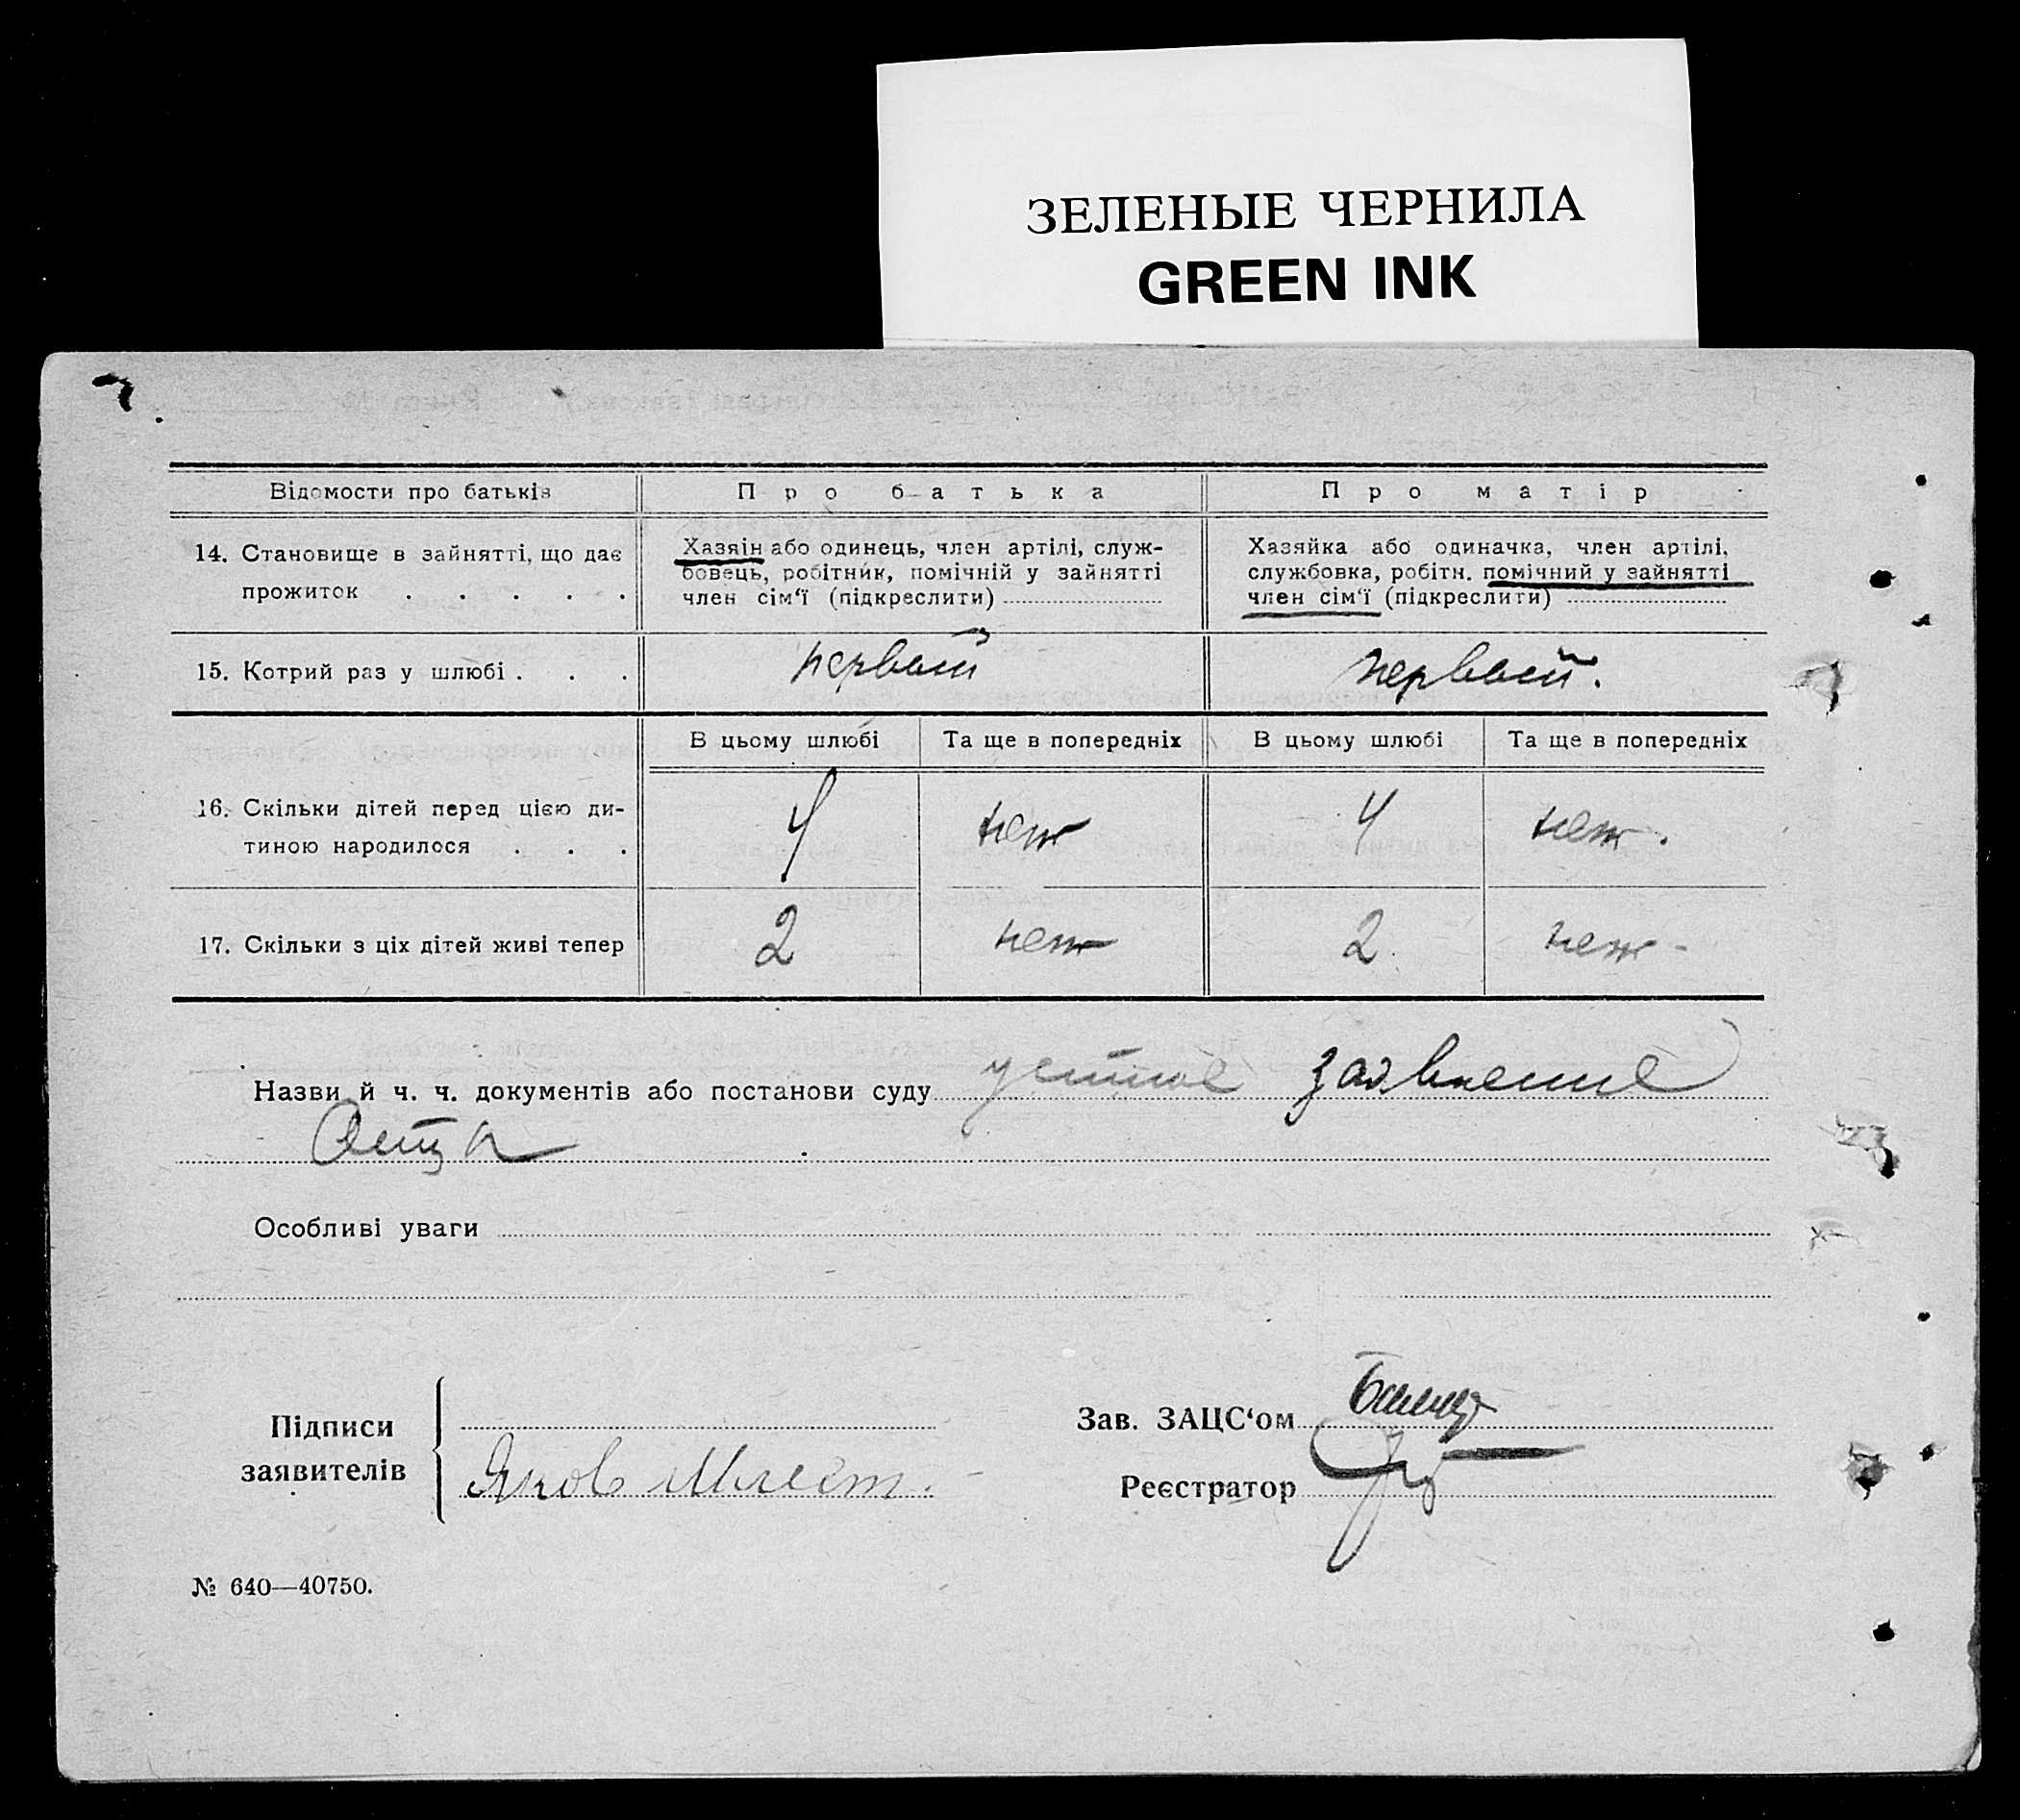 ЗЕЛЕНЫЕ ЧЕРНИЛА
GREEN INK
Відомости про батьків
Про батька
Про матір
14. Становище в зайнятті, що дає
прожиток . . . . .
Хазяїн або одинець, член артілі, служ-
бовець, робітник, помічній у зайнятті
член сім'ї (підкреслити)
Хазяйка або одиначка, член артілі,
службовка, робітн. помічний у зайнятті
член сім'ї (підкреслити)
15. Котрий раз у шлюбі . . .
первый
первый.
В цьому шлюбі
Та ще в попередніх
В цьому шлюбі
Та ще в попередніх
16. Скільки дітей перед цією ди-
тиною народилося . . .
4
нет
4
нет.
17. Скільки з ціх дітей живі тепер
2
нет
2
нет
Назви й ч. ч. документів або постанови суду устное заявление
Отца
Особливі уваги
Підписи
заявителів
Яков
Зав. ЗАЦС'ом
Реєстратор
№ 640—40750.